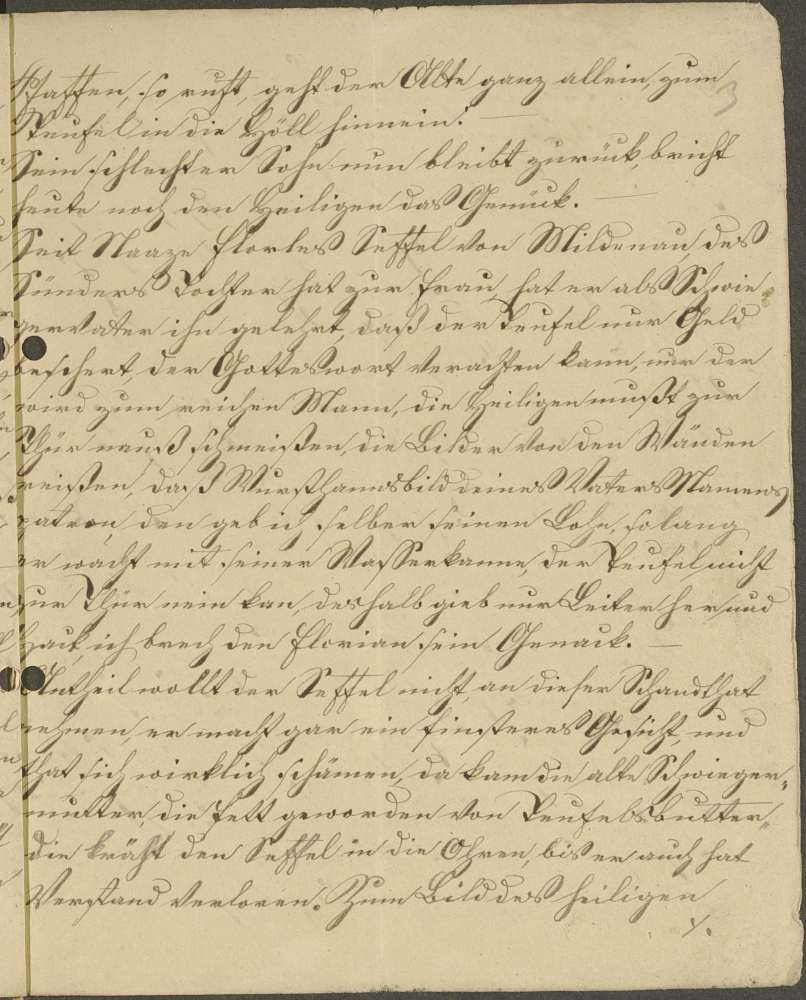 Pfaffen, so ruft, geht der Alte ganz allein, zum
3
Teufel in die Höll hinnein. —
Sein schlechter Sohn nun bleibt zurück, bricht
heute noch den Heiligen das Genück. —
Seit Naaze Florles Seffel von Mildenau, des
Sünders Tochter hat zur Frau, hat er als Schwie-
gervater ihn gelehrt, daß der Teufel nur Geld
beschert, der Gotteswort verachten kann, nur der
wird zum reichen Mann, die Heiligen mußt zur
Thür nauß schmeißen, die Bilder von den Wänden
reißen, daß Wursthannsbild deines Vaters Namens
patron, den geb ich selber seinen Lohn, solang
er wacht mit seiner Wasserkanne, der Teufel nicht
zur Thür nein kan, deshalb gieb nur Leiter her und
Hack, ich brech den Florian sein Genack. —
Antheil wollt der Seffel nicht, an dieser Schandthat
nehmen, er macht gar ein finsteres Gesicht, und
that sich wirklich schämen, da kam die alte Schwieger-
mutter, die fett geworden von Teufelsbutter,
die kräht den Seffel in die Ohren, bis er auch hat
Verstand verloren. Zum Bild des heiligen